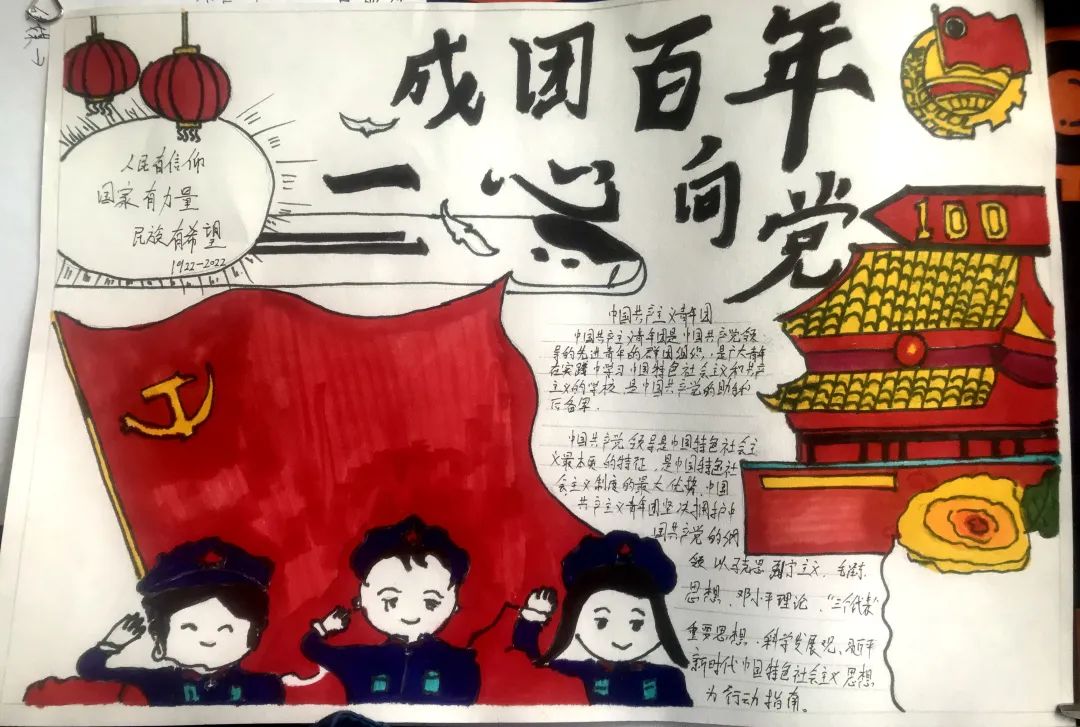 成团百年
一心向党
人民有信仰
国家有力量
民族有希望
1922-2022
100
中国共产主义青年团
中国共产主义青年团是中国共产党领
导的先进青年的群团组织，是广大青年
在实践中学习中国特色社会主义和共产
主义的学校，是中国共产党的助手和
后备军.
中国共产党领导是中国特色社会主
义最本质的特征，是中国特色社
会主义制度的最大优势.中国
共产主义青年团坚决拥护中
国共产党的纲
领以马克思列宁主义、毛泽东
思想、邓小平理论、"三个代表"
重要思想、科学发展观、习近平
新时代中国特色社会主义思想
为行动指南。